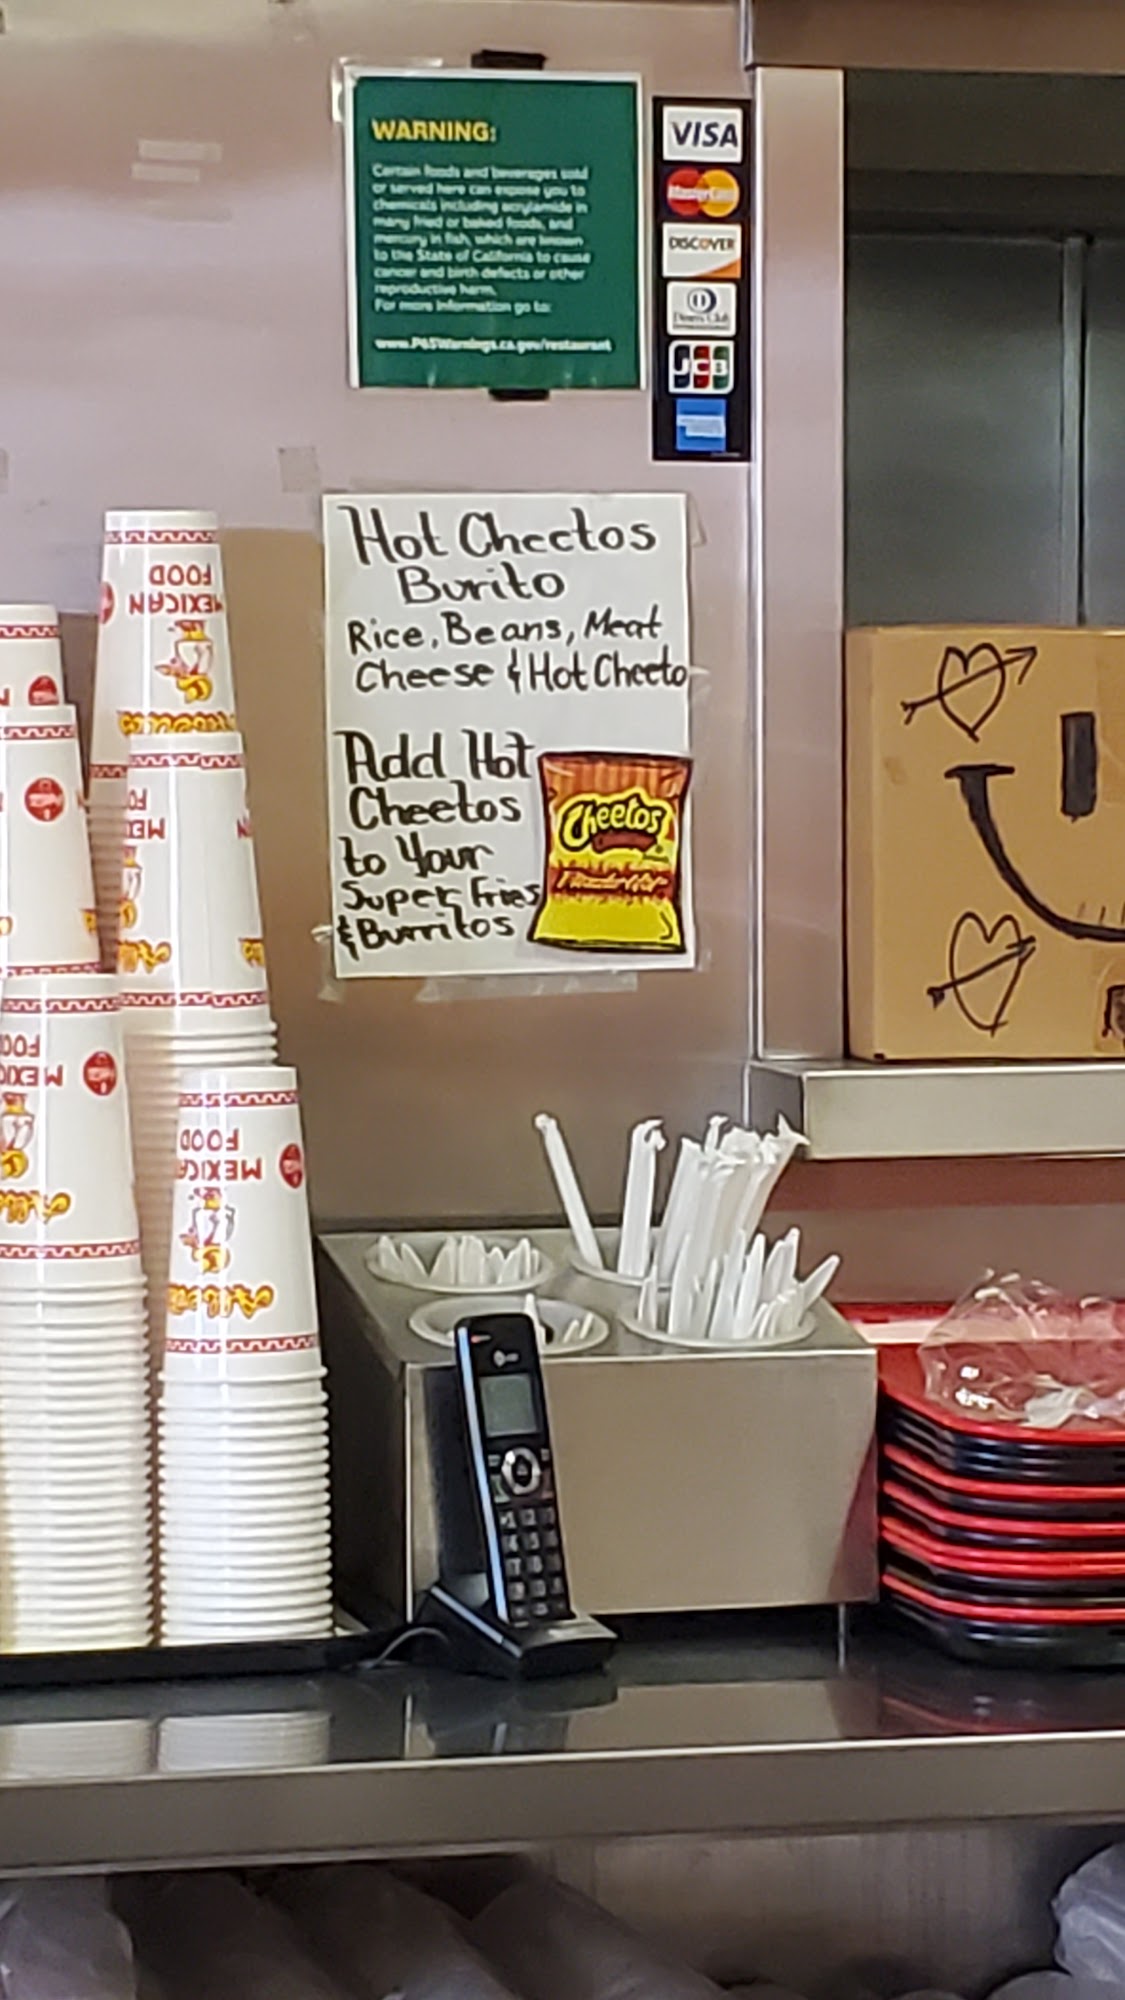 WARNING:
Certain foods and beverages sold
or served here can expose you to
chemicals including acrylamide in
many fried or baked foods, and
mercury in fish, which are known
to the State of California to cause
cancer and birth defects or other
reproductive harm.
For more information go to:
www.P65Warnings.ca.gov/restaurant
VISA
MasterCard
DISCOVER
Diners Club
JCB
Hot Cheetos
Burito
Rice, Beans, Meat
Cheese & Hot Cheeto
Add Hot
Cheetos
to Your
Super Fries
& Burritos
Cheetos
Flamin' Hot
MEXICAN
FOOD
MEXICAN
FOOD